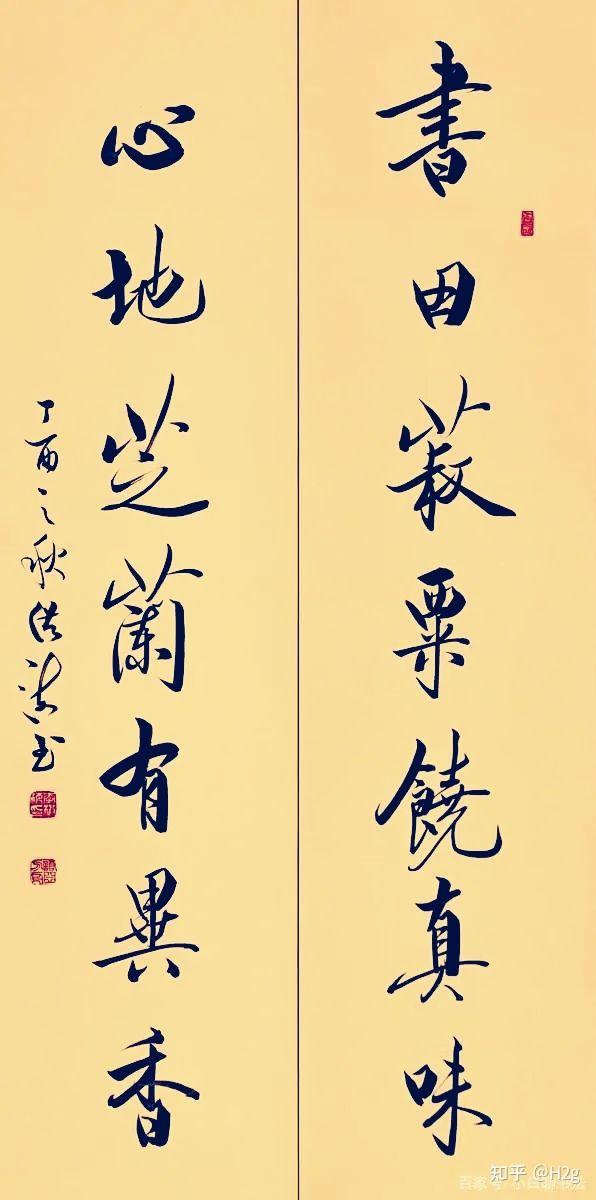 書田菽粟饒真味
心地芝蘭有異香
丁酉之秋
知乎 @H2g